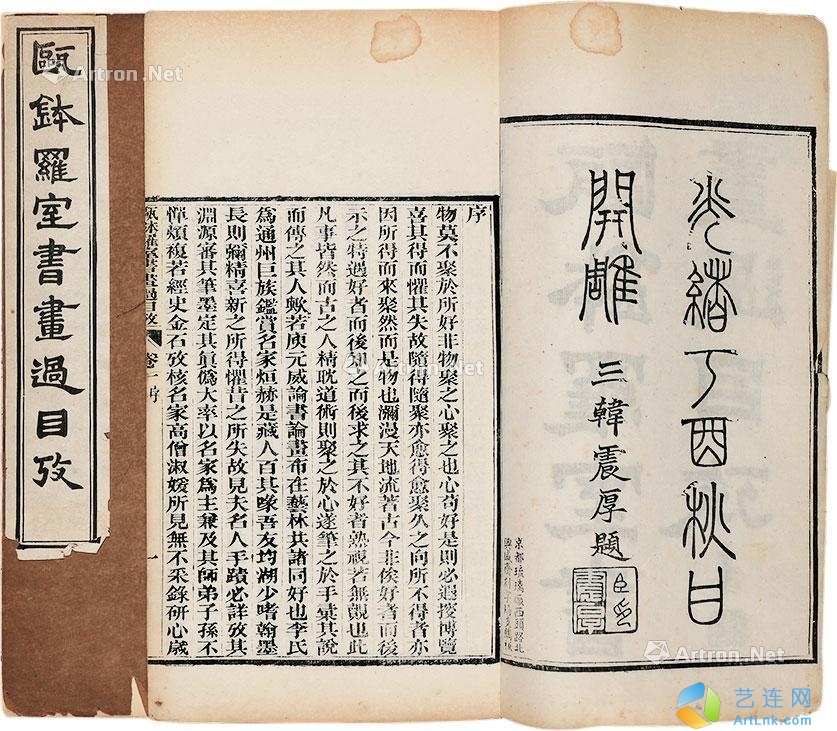 甌鉢羅室書畫過目攷
光緒丁酉秋日
開雕
三韓震厚題
臣印
震厚
京都琉璃廠西頭路北
序
物莫不聚於所好非物聚之心聚之也心苟好是則必遐搜博覽
喜其得而懼其失故隨得隨聚亦愈得愈聚久之向所不得者亦
因所得而來聚然而是物也瀰漫天地流著古今非俟好者而後
示之特遇好者而後知之而後求之其不好者熟視若無覩也此
凡事皆然而古之人精耽道術則聚之於心遂筆之於手彙其說
而傳之其人歟若庾元威論書論畫布在藝林共諸同好也李氏
為通州巨族鑑賞名家烜赫是藏人百其喙吾友均湖少嗜翰墨
長則彌精喜新之所得懼昔之所失故見夫名人手蹟必詳攷其
淵源審其筆墨定其眞僞大率以名家爲主兼及其師弟子孫不
憚煩複若經史金石攷核名家高僧淑媛所見無不采錄研心歲
甌鉢羅室書畫過目攷
卷一
序
一
Artron.Net
Artron.Net
Artron.Net
Artron.Net
Artron.Net
Artron.Net
艺连网
ArtLnk.com